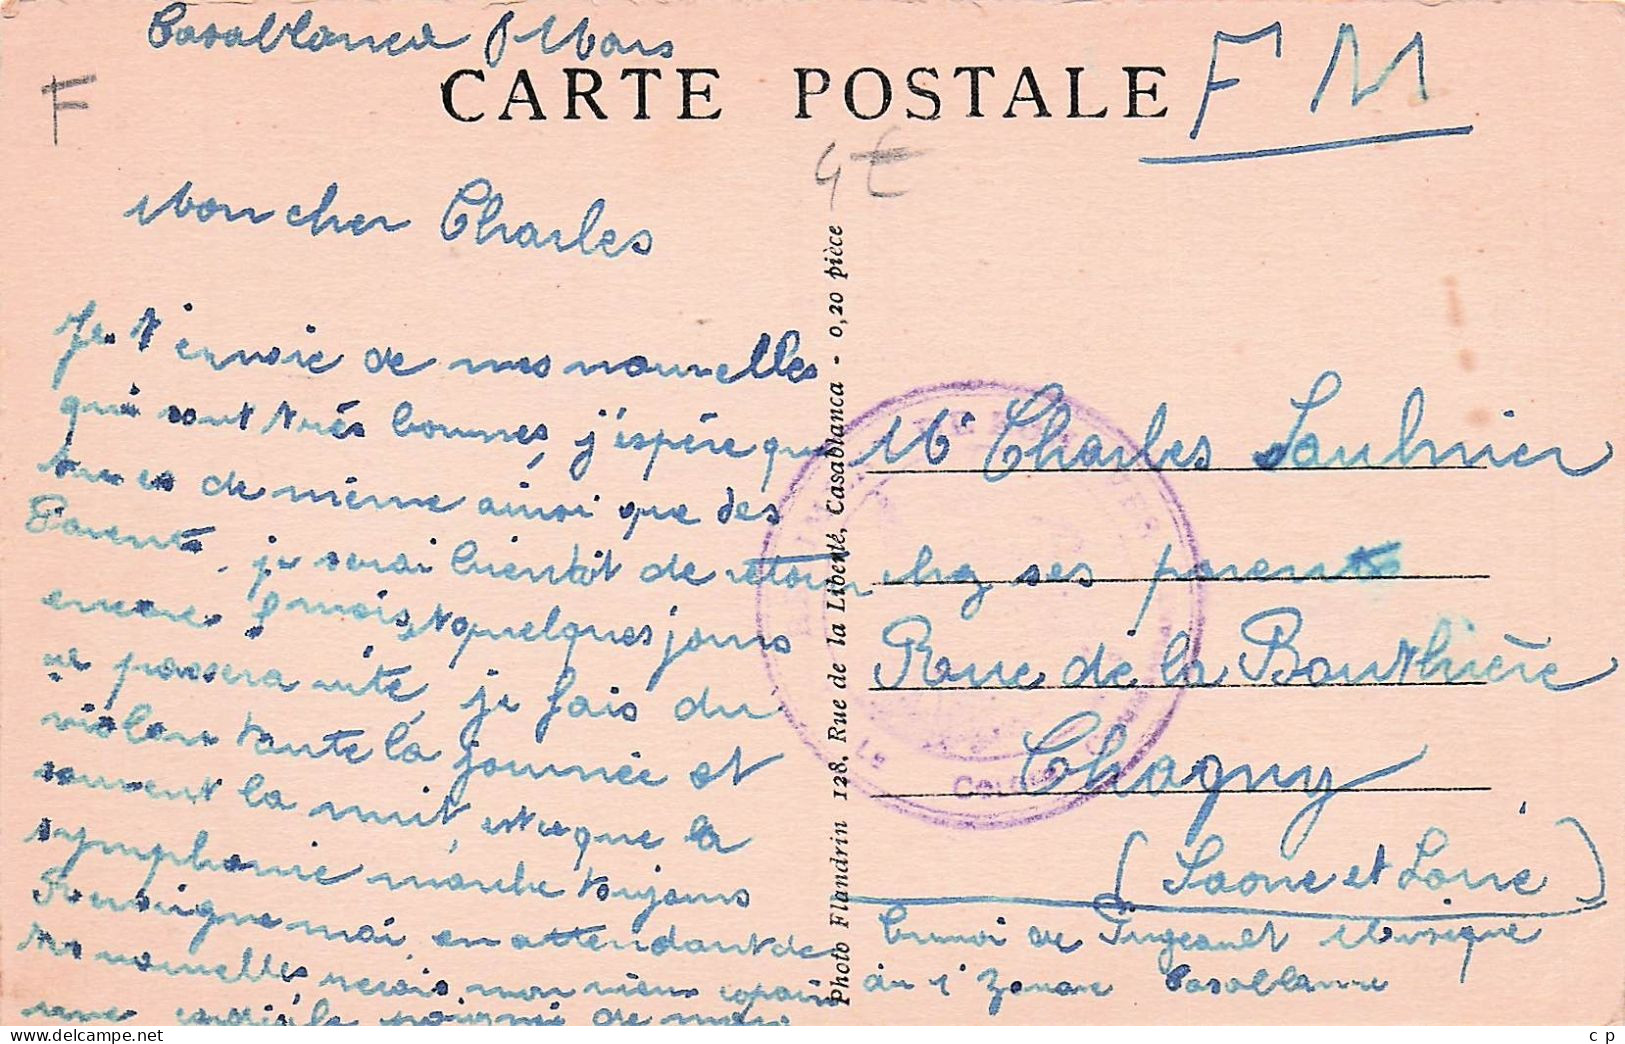 Casablanca 8 Mars
CARTE POSTALE
F M
F
4€
Mon cher Charles
Je t'envoie de mes nouvelles
qui sont très bonnes, j'espère que
tu es de même ainsi que des
Parents, je serai bientôt de retour
encore 8 mois et quelques jours
ce passera vite, je fais du
violon toute la journée et
souvent la nuit, est ce que la
symphonie marche toujours
Renseigne moi, en attendant de
tes nouvelles reçois mon vieux copain
une cordiale poignée de main
Photo Flandrin 128, Rue de la Liberté, Casablanca - 0,20 pièce
Mr Charles Saulnier
chez ses parents
Rue de la Bouthière
Chagny
(Saone et Loire)
Envoi de Pugeault Musique
au 1r Zouave Casablanca
c p